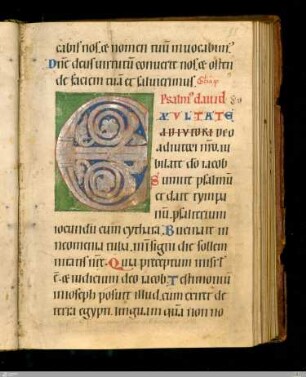 cabis nos & nomen tuu inuocabim'.
Dne deus uirtutum conuerte nos & osten
de faciem tua et salui erimus.
Psalm' dauid 80
EXULTATE
ADIUTORI deo
adiutori nro. iu
bilate deo iacob
Sumite psalmu
et date tympa
nu. psalterium
iocundu cum cythara. Bucinate in
neomenia tuba. in insigni die sollem
nitatis
Quia preceptum in isrl
e. & iudicium deo iacob. Testimoniu
in ioseph posuit illud. cum exiret de
terra egypti. linguam qua non no